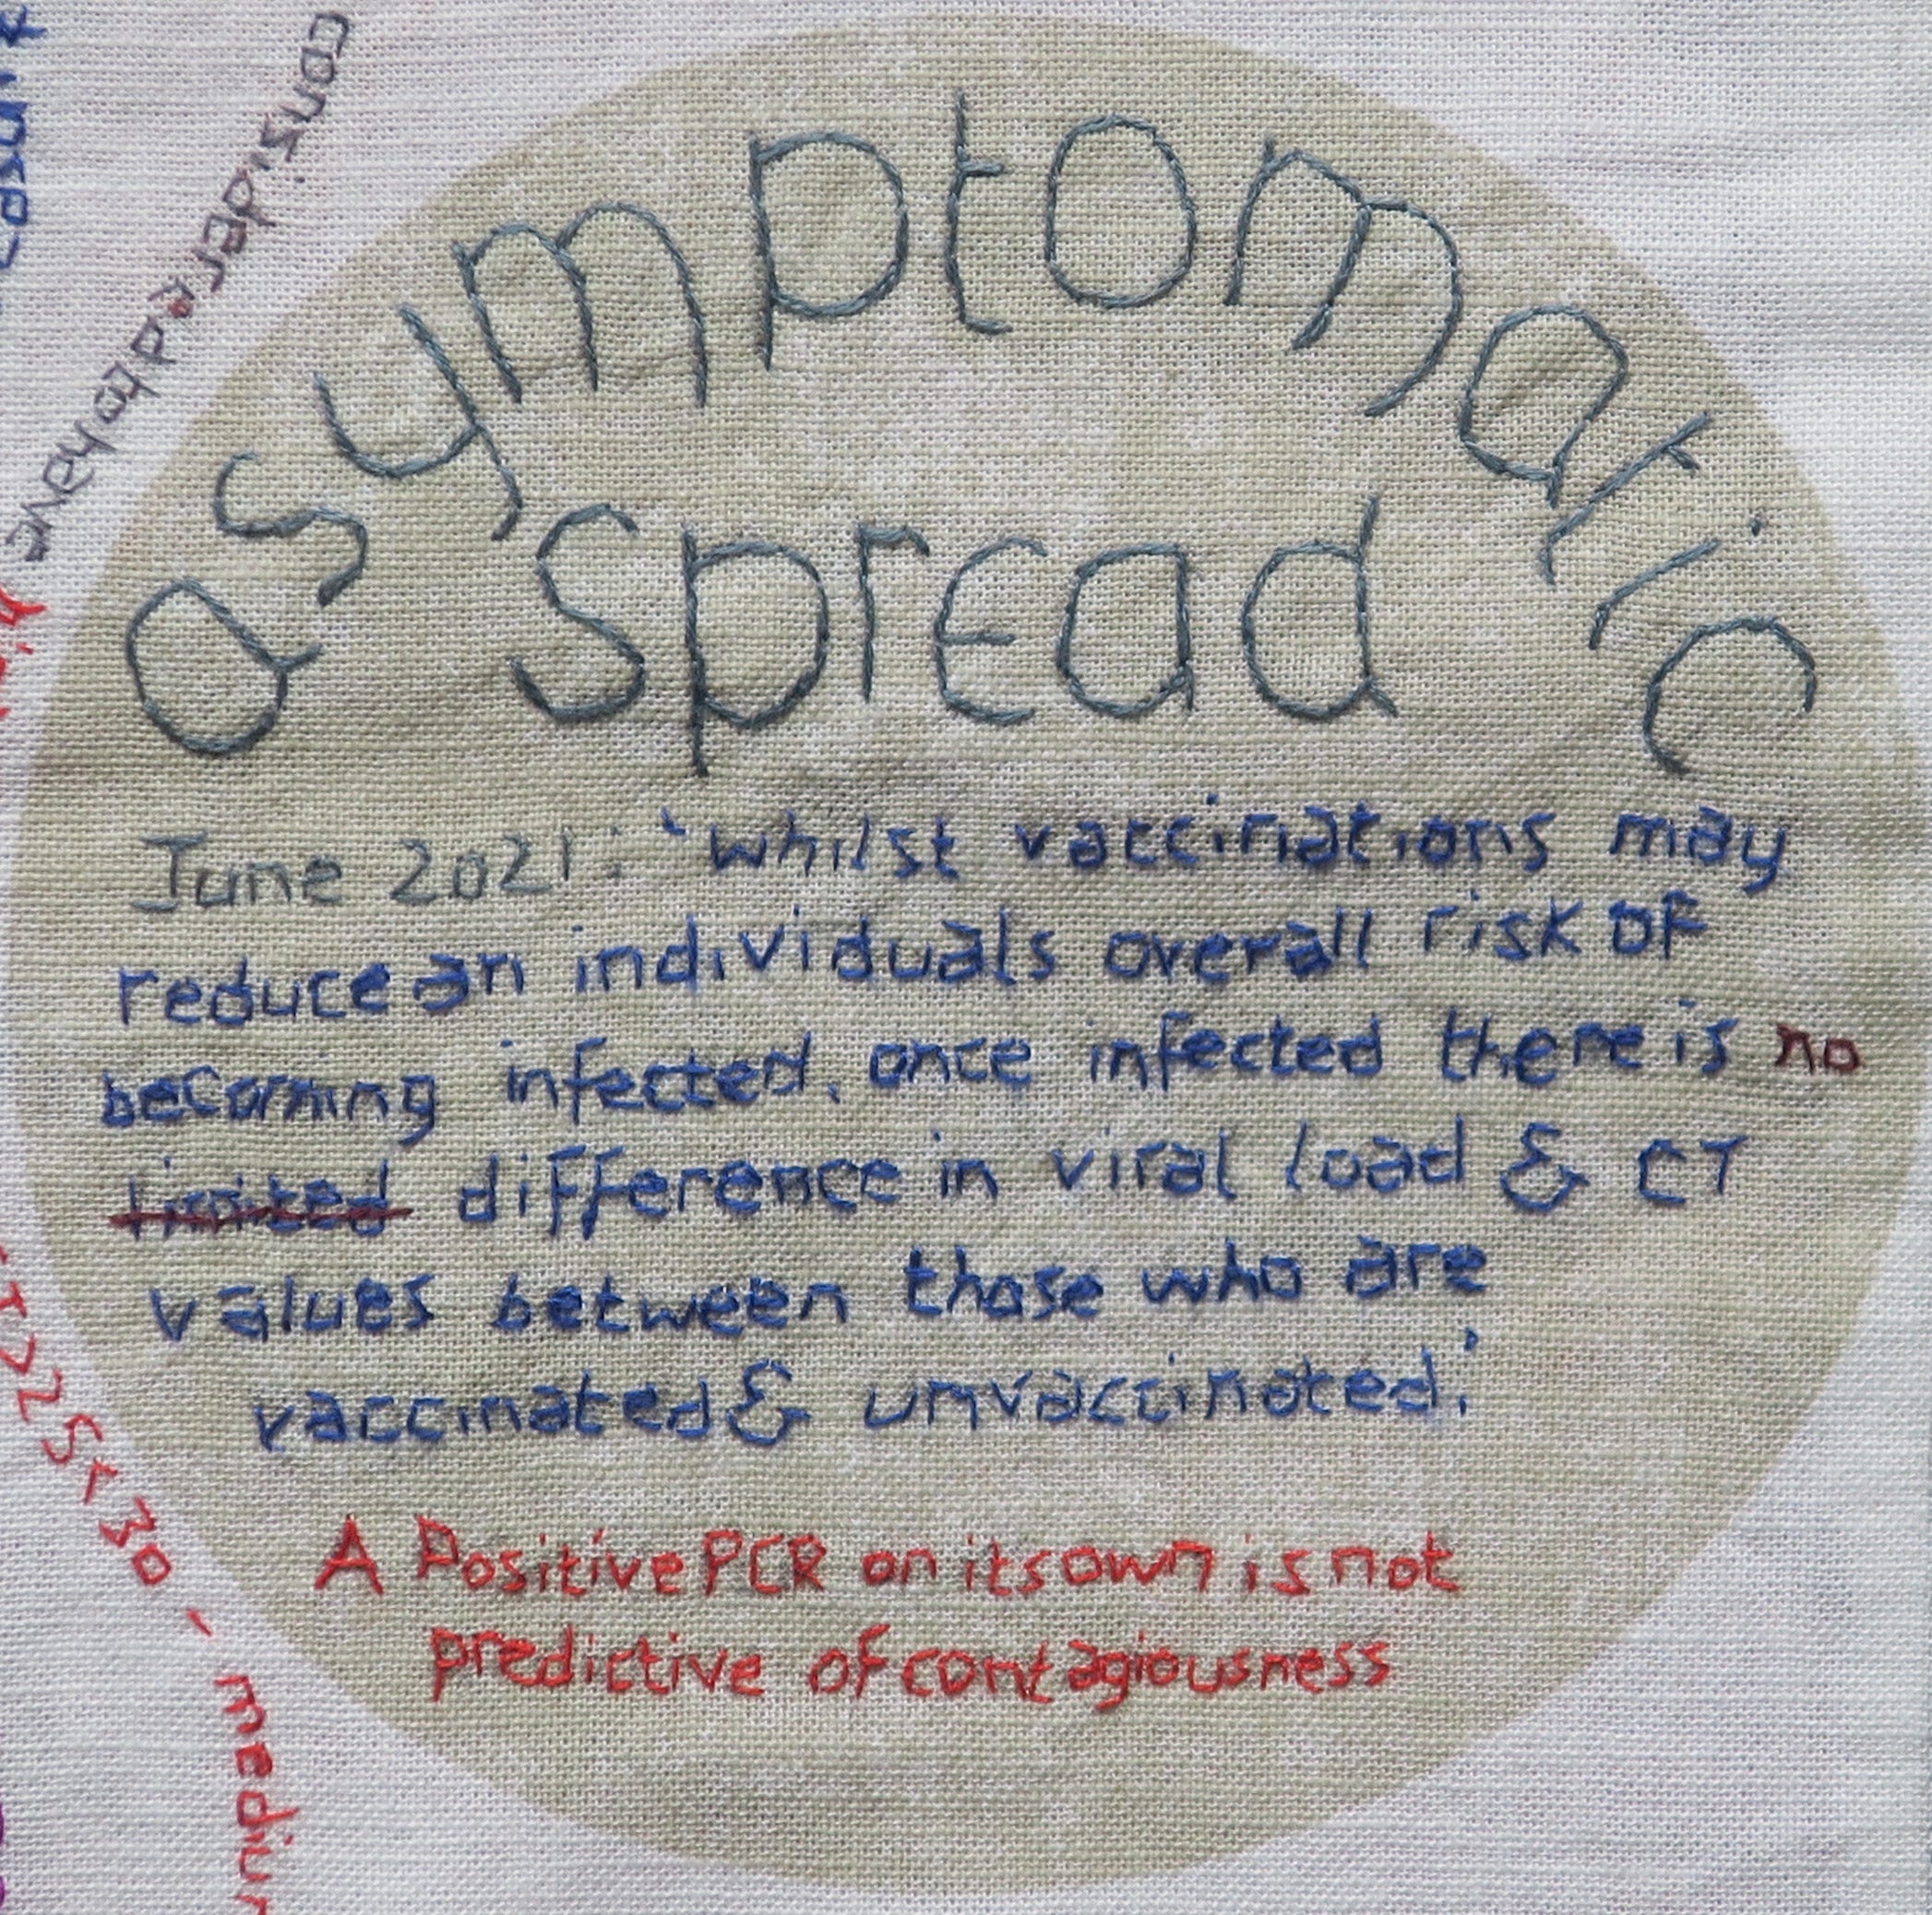 asymptomatic
spread
June 2021: 'whilst vaccinations may
reduce an individuals overall risk of
becoming infected, once infected there is no
limited difference in viral load & CT
values between those who are
vaccinated & unvaccinated.'
A Positive PCR on its own is not
predictive of contagiousness
considered to have